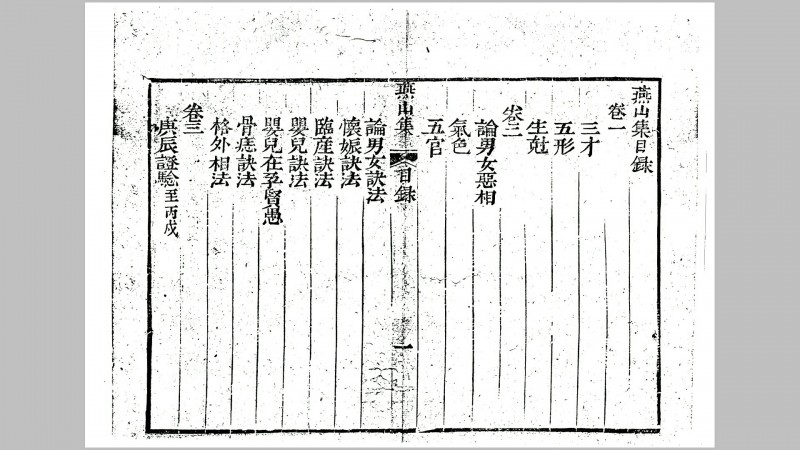 燕山集目録
卷一
三才
五形
生尅
卷二
論男女惡相
氣色
五官
燕山集 目録 一
論男女訣法
懷娠訣法
臨産訣法
嬰兒訣法
嬰兒在孕賢愚
骨痣訣法
格外相法
卷三
庚辰證驗至丙戌